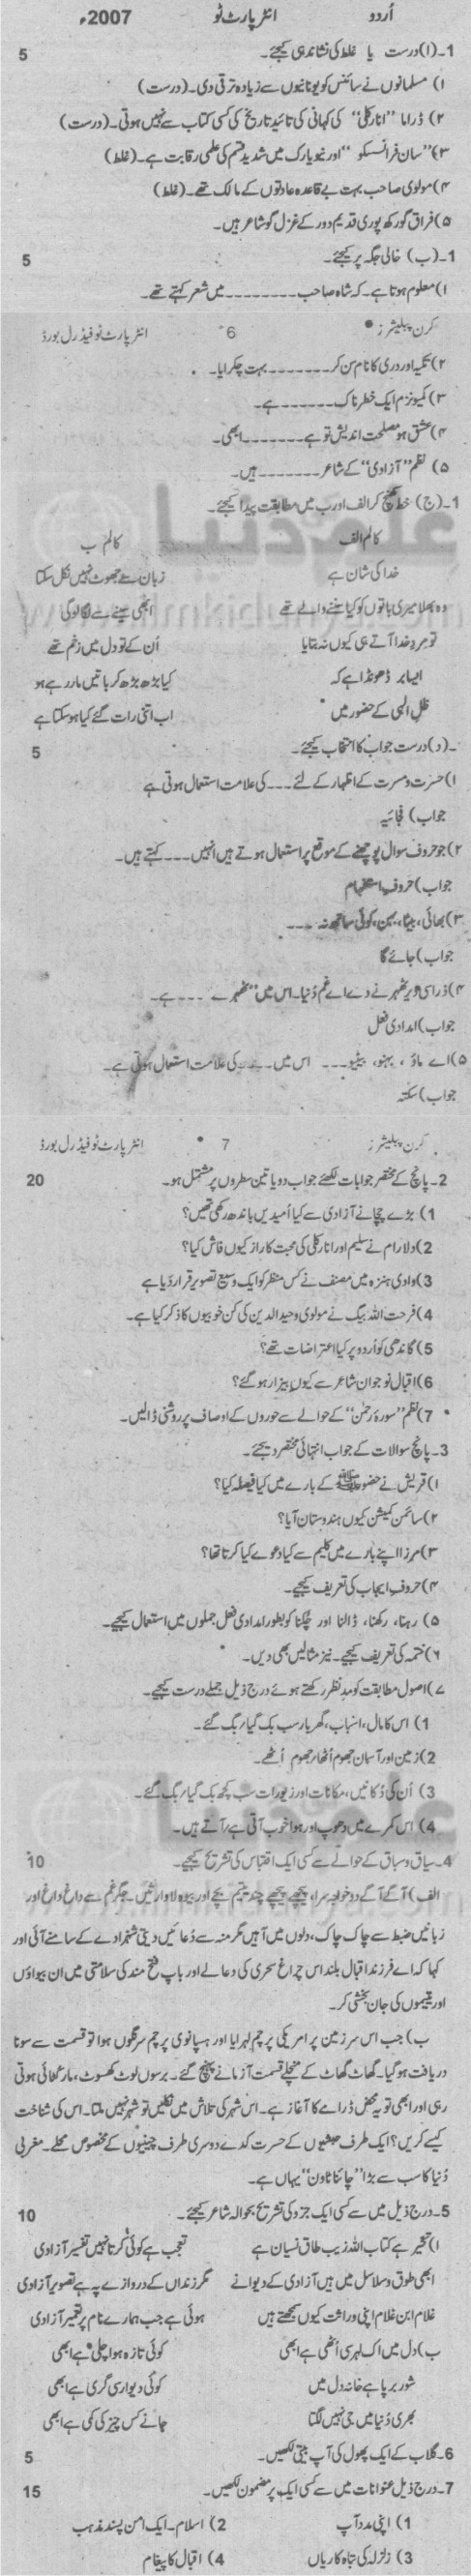 اُردو انٹر پارٹ ٹو 2007ء
1۔(ا) درست یا غلط کی نشاندہی کیجئے۔ 5
۱) مسلمانوں نے سائنس کو یونانیوں سے زیادہ ترقی دی۔ (درست)
۲) ڈراما ’’انارکلی‘‘ کی کہانی کی تائید تاریخ کی کسی کتاب سے نہیں ہوتی۔ (درست)
۳) ’’سان فرانسسکو‘‘ اور نیویارک میں شدید قسم کی علمی رقابت ہے۔ (غلط)
۴) مولوی صاحب بہت بے قاعدہ عادتوں کے مالک تھے۔ (غلط)
۵) فراق گورکھ پوری قدیم دور کے غزل گو شاعر ہیں۔
1۔(ب) خالی جگہ پر کیجئے۔ 5
۱) معلوم ہوتا ہے۔ کہ شاہ صاحب ــــــــ میں شعر کہتے تھے۔
کرن پبلیشرز 6 انٹر پارٹ ٹو فیڈرل بورڈ
۲) تکیہ اور دری کا نام سن کر ــــــــ بہت چکرایا۔
۳) کمیونزم ایک خطرناک ــــــــ ہے۔
۴) عشق ہو مصلحت اندیش تو ہے ــــــــ ابھی۔
۵) نظم ’’آزادی‘‘ کے شاعر ــــــــ ہیں۔
1۔(ج) خط کھینچ کر الف اور ب میں مطابقت پیدا کیجئے۔
کالم الف کالم ب
خدا کی شان ہے زبان سے جھوٹ نہیں نکل سکتا
وہ بھلا میری باتوں کو کیا سننے والے تھے ابھی سینے سے لگا لوگی
تو مردِ خدا آتے ہی کیوں نہ بتایا اُن کے تو دل میں زخم تھے
ایسا بر ڈھونڈا ہے کہ کیا بڑھ بڑھ کر باتیں مار رہے ہو
ظلِ الٰہی کے حضور میں اب اتنی رات گئے کیا ہو سکتا ہے
۔(د) درست جواب کا انتخاب کیجئے۔ 5
۱) حسرت و مسرت کے اظہار کے لئے ۔۔۔ کی علامت استعمال ہوتی ہے
جواب) فجائیہ
۲) جو حروف سوال پوچھنے کے موقع پر استعمال ہوتے ہیں انہیں ۔۔۔ کہتے ہیں۔
جواب) حروفِ استفہام
۳) بھائی، بیٹا، بہن، کوئی ساتھ نہ ۔۔۔
جواب) جائے گا
۴) ذرا سی دیر ٹھہرنے دے اے غمِ دُنیا۔ اس میں ’’ٹھہرے ۔۔۔ ہے۔
جواب) امدادی فعل
۵) اے ماؤ ، بہنو، بیٹیو۔۔۔ اس میں ۔۔۔ کی علامت استعمال ہوتی ہے۔
جواب) سکتہ
کرن پبلیشرز 7 انٹر پارٹ ٹو فیڈرل بورڈ
2۔ پانچ کے مختصر جوابات لکھئے جواب دو یا تین سطروں پر مشتمل ہو۔ 20
1) بڑے چچا نے آزادی سے کیا اُمیدیں باندھ رکھی تھیں؟
2) دلارام نے سلیم اور انارکلی کی محبت کا راز کیوں فاش کیا؟
3) وادی ہنزہ میں مصنف نے کس منظر کو ایک وسیع تصویر قرار دیا ہے
4) فرحت اللہ بیگ نے مولوی وحید الدین کی کن خوبیوں کا ذکر کیا ہے۔
5) گاندھی کو اُردو پر کیا اعتراضات تھے؟
6) اقبال نوجوان شاعر سے کیوں بیزار ہو گئے؟
7) نظم ’’سورۂ رحمٰن‘‘ کے حوالے سے حوروں کے اوصاف پر روشنی ڈالیں۔
3۔ پانچ سوالات کے جواب انتہائی مختصر دیجئے۔
۱) قریش نے حضورﷺ کے بارے میں کیا فیصلہ کیا؟
۲) سائمن کمیشن کیوں ہندوستان آیا؟
۳) مرزا اپنے بارے میں کلیم سے کیا دعوے کیا کرتا تھا؟
۴) حروفِ ایجاب کی تعریف کیجیے۔
۵) رہنا، رکھنا، ڈالنا اور چکنا کو بطور امدادی فعل جملوں میں استعمال کیجیے۔
۶) ختمہ کی تعریف کیجیے۔ نیز مثالیں بھی دیں۔
۷) اصول مطابقت کو مدِ نظر رکھتے ہوئے درج ذیل جملے درست کیجیے۔
1) اس کا مال، اسباب، گھر بار سب بک گیا / بک گئے۔
2) زمین اور آسمان جھوم اُٹھا / جھوم اُٹھے۔
3) اُن کی دُکانیں، مکانات اور زیورات سب کچھ بک گیا / بک گئے۔
4) اس کمرے میں دھوپ اور ہوا خوب آتی ہے / آتے ہیں۔
4۔ سیاق و سباق کے حوالے سے کسی ایک اقتباس کی تشریح کیجیے۔ 10
الف) آگے آگے دو خواجہ سرا، پیچھے پیچھے چند یتیم بچے اور بیوہ لاوارثیں۔ جگر غم سے داغ داغ اور
زبانیں ضبط سے چاک چاک، دلوں میں آہیں مگر منہ سے دُعائیں دیتی شہزادے کے سامنے آئی اور
کہا کہ اے فرزند اقبال بلند اس چراغِ سحری کی دعا لے اور باپ فتح مند کی سلامتی میں ان بیواؤں
اور یتیموں کی جان بخشی کر۔
ب) جب اس سرزمین پر امریکی پرچم لہرایا اور ہسپانوی پرچم سرنگوں ہوا تو قسمت سے سونا
دریافت ہو گیا۔ گھاٹ گھاٹ کے منچلے قسمت آزمانے پہنچ گئے۔ برسوں لوٹ کھسوٹ، مار کٹائی ہوتی
رہی اور ابھی تو یہ محض ڈرامے کا آغاز ہے۔ اس شہر کی تلاش میں نکلیں تو شہر نہیں ملتا۔ اس کی شناخت
کیسے کریں؟ ایک طرف حبشیوں کے حسرت کدے دوسری طرف چینیوں کے مخصوص محلے۔ مغربی
دُنیا کا سب سے بڑا ’’چائنا ٹاون‘‘ یہاں ہے۔
5۔ درج ذیل میں سے کسی ایک جزو کی تشریح بحوالہ شاعر کیجئے۔ 10
۱) تحیر ہے کتاب اللہ زیبِ طاقِ نسیان ہے تعجب ہے کوئی کرتا نہیں تفسیر آزادی
ابھی طوق و سلاسل میں ہیں آزادی کے دیوانے مگر زنداں کے دروازے پہ ہے تصویر آزادی
غلام ابنِ غلام اپنی وراثت کیوں سمجھتے ہیں ہوئی ہے جب ہمارے نام پر تعمیر آزادی
ب) دل میں اک لہر سی اُٹھی ہے ابھی کوئی تازہ ہوا چلی ہے ابھی
شور برپا ہے خانہ دل میں کوئی دیوار سی گری ہے ابھی
بھری دُنیا میں جی نہیں لگتا جانے کس چیز کی کمی ہے ابھی
6۔ گلاب کے ایک پھول کی آپ بیتی لکھیں۔ 5
7۔ درج ذیل عنوانات میں سے کسی ایک پر مضمون لکھیں۔ 15
1) اپنی مدد آپ 2) اسلام۔ ایک امن پسند مذہب
3) زلزلہ کی تباہ کاریاں 4) اقبال کا پیغام